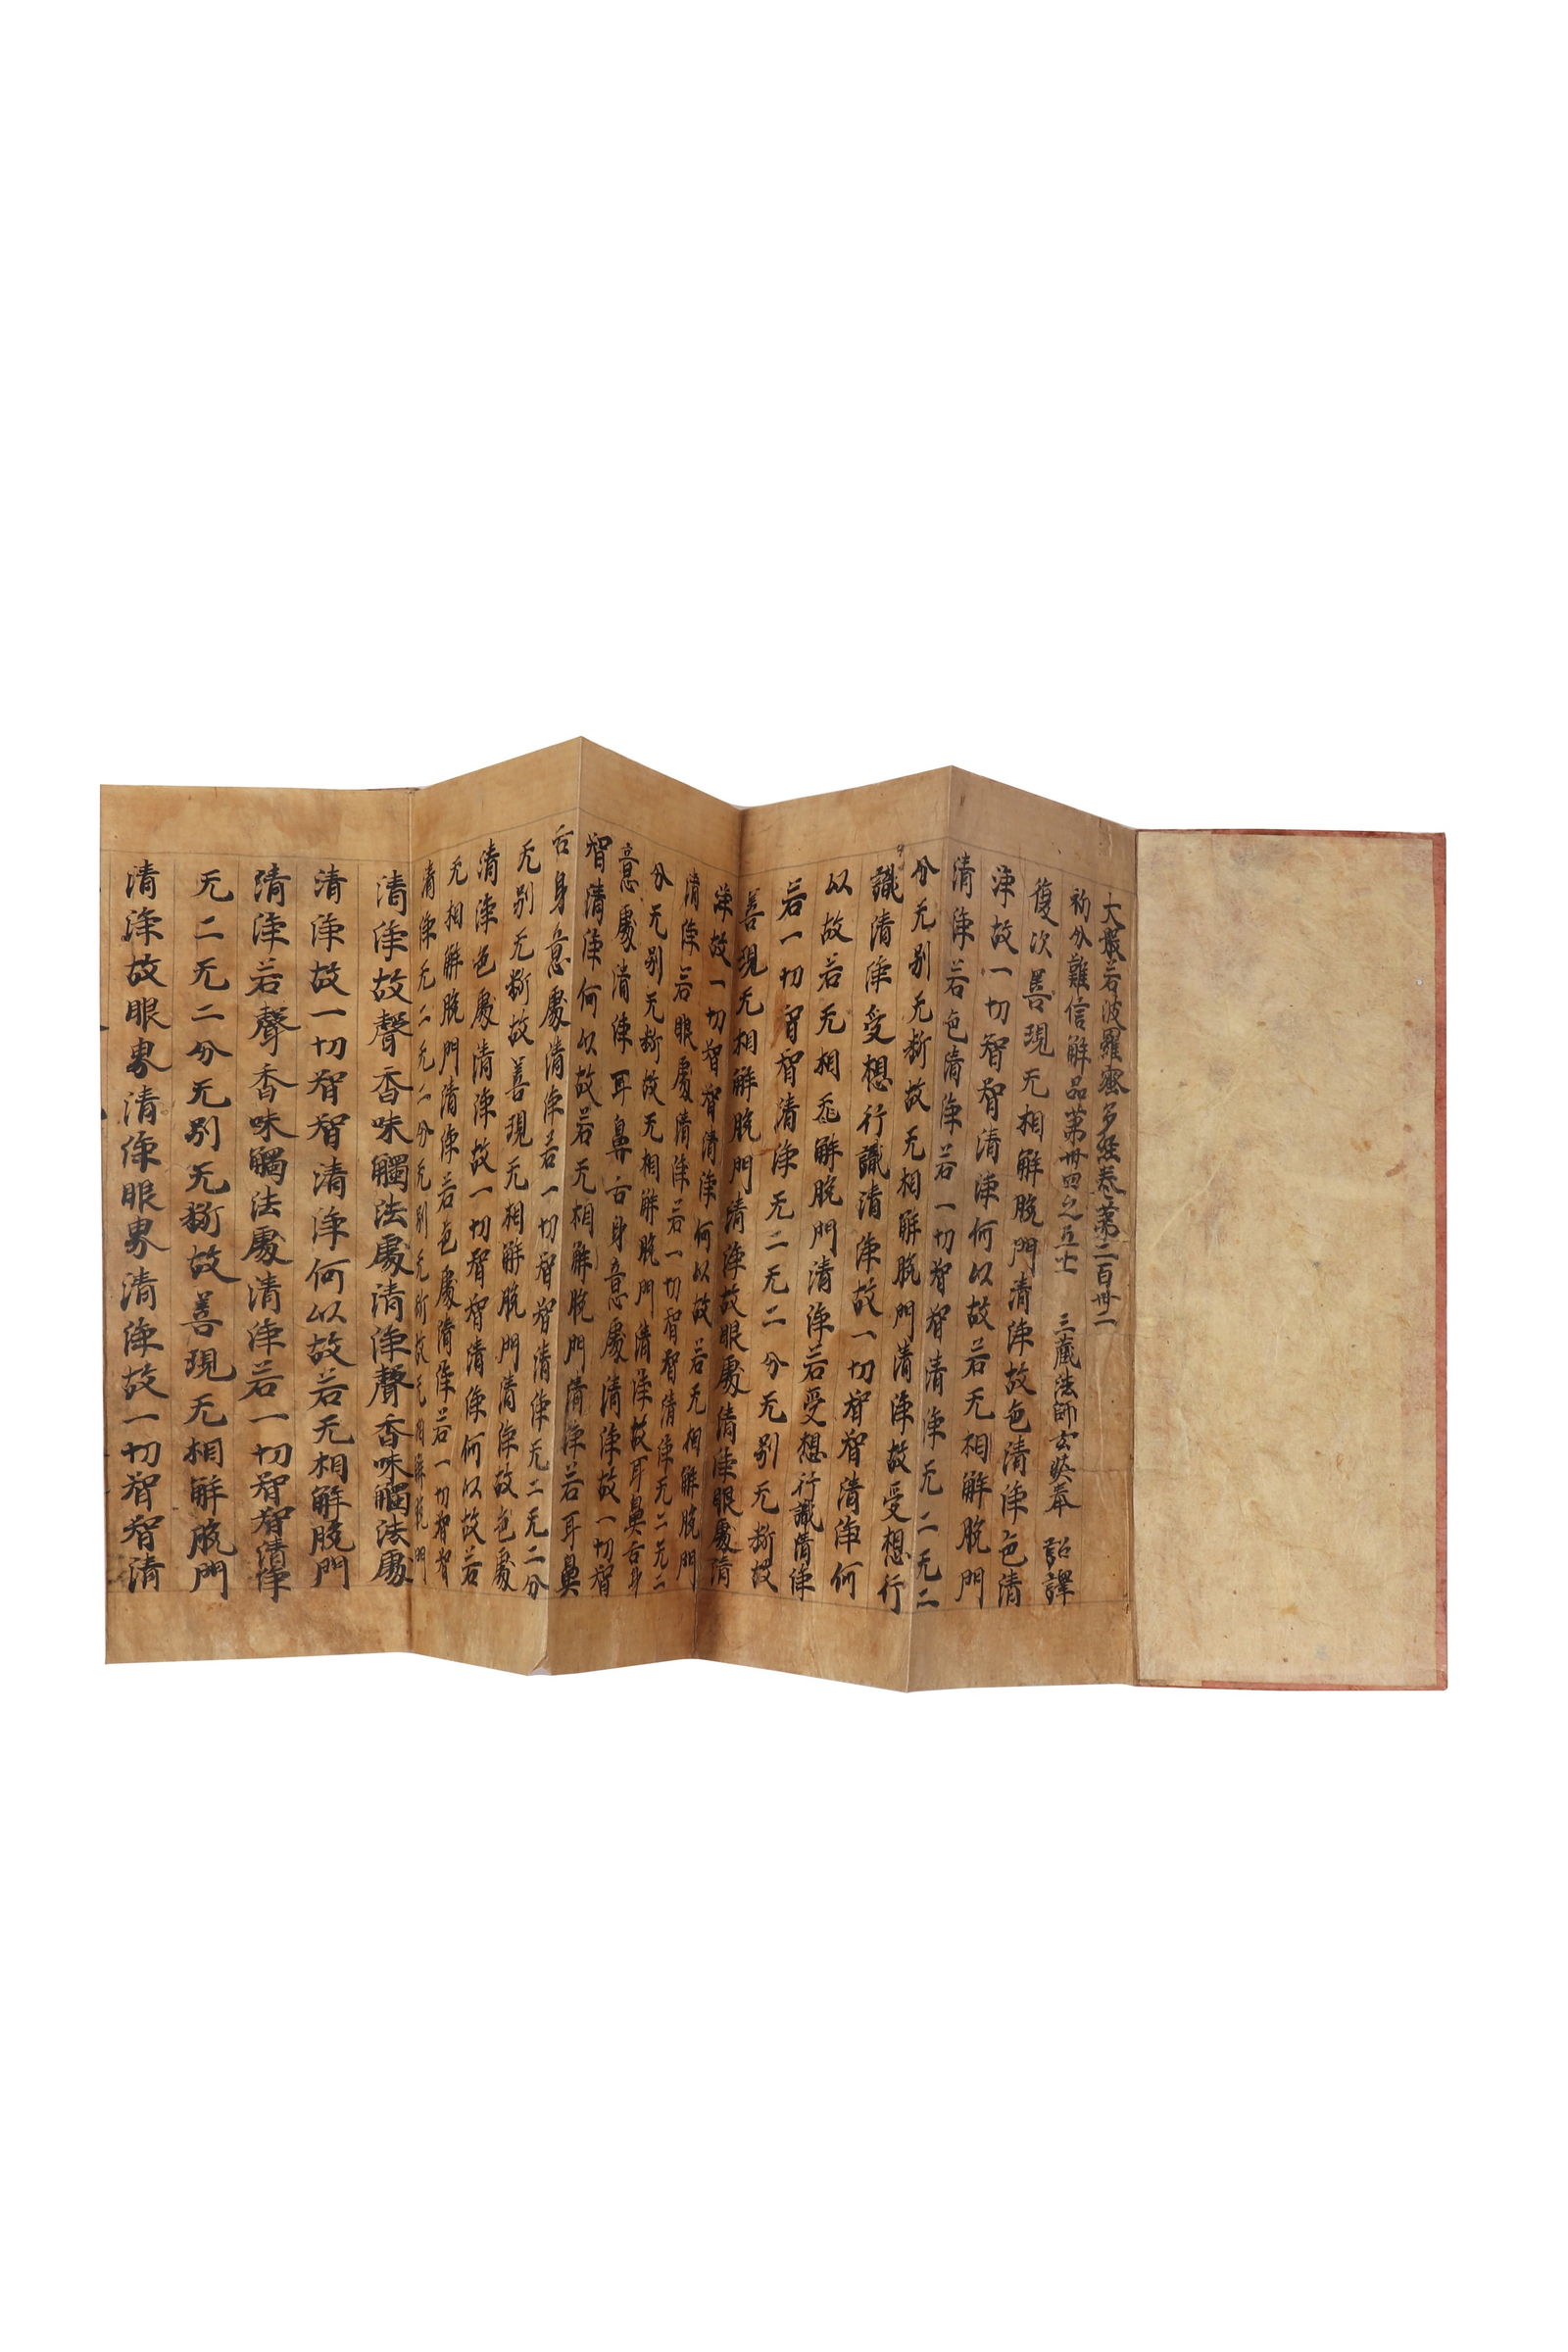 大般若波羅蜜多経卷第二百卅二
初分難信解品第卅四之五十一 三蔵法師玄奘奉 詔譯
復次善現无相解脱門清淨故色清淨色清
淨故一切智智清淨何以故若无相解脱門
清淨若色清淨若一切智智清淨无二无二
分无别无断故无相解脱門清淨故受想行
識清淨受想行識清淨故一切智智清淨何
以故若无相解脱門清淨若受想行識清淨
若一切智智清淨无二无二分无别无断故
善現无相解脱門清淨故眼處清淨眼處清
淨故一切智智清淨何以故若无相解脱門
清淨若眼處清淨若一切智智清淨无二无二
分无别无断故无相解脱門清淨故耳鼻舌身
意處清淨耳鼻舌身意處清淨故一切智
智清淨何以故若无相解脱門清淨若耳鼻
舌身意處清淨若一切智智清淨无二无二分
无别无断故善現无相解脱門清淨故色處
清淨色處清淨故一切智智清淨何以故若
无相解脱門清淨若色處清淨若一切智智
清淨无二无二分无别无断故无相解脱門
清淨故聲香味觸法處清淨聲香味觸法處
清淨故一切智智清淨何以故若无相解脱門
清淨若聲香味觸法處清淨若一切智智清淨
无二无二分无别无断故善現无相解脱門
清淨故眼界清淨眼界清淨故一切智智清